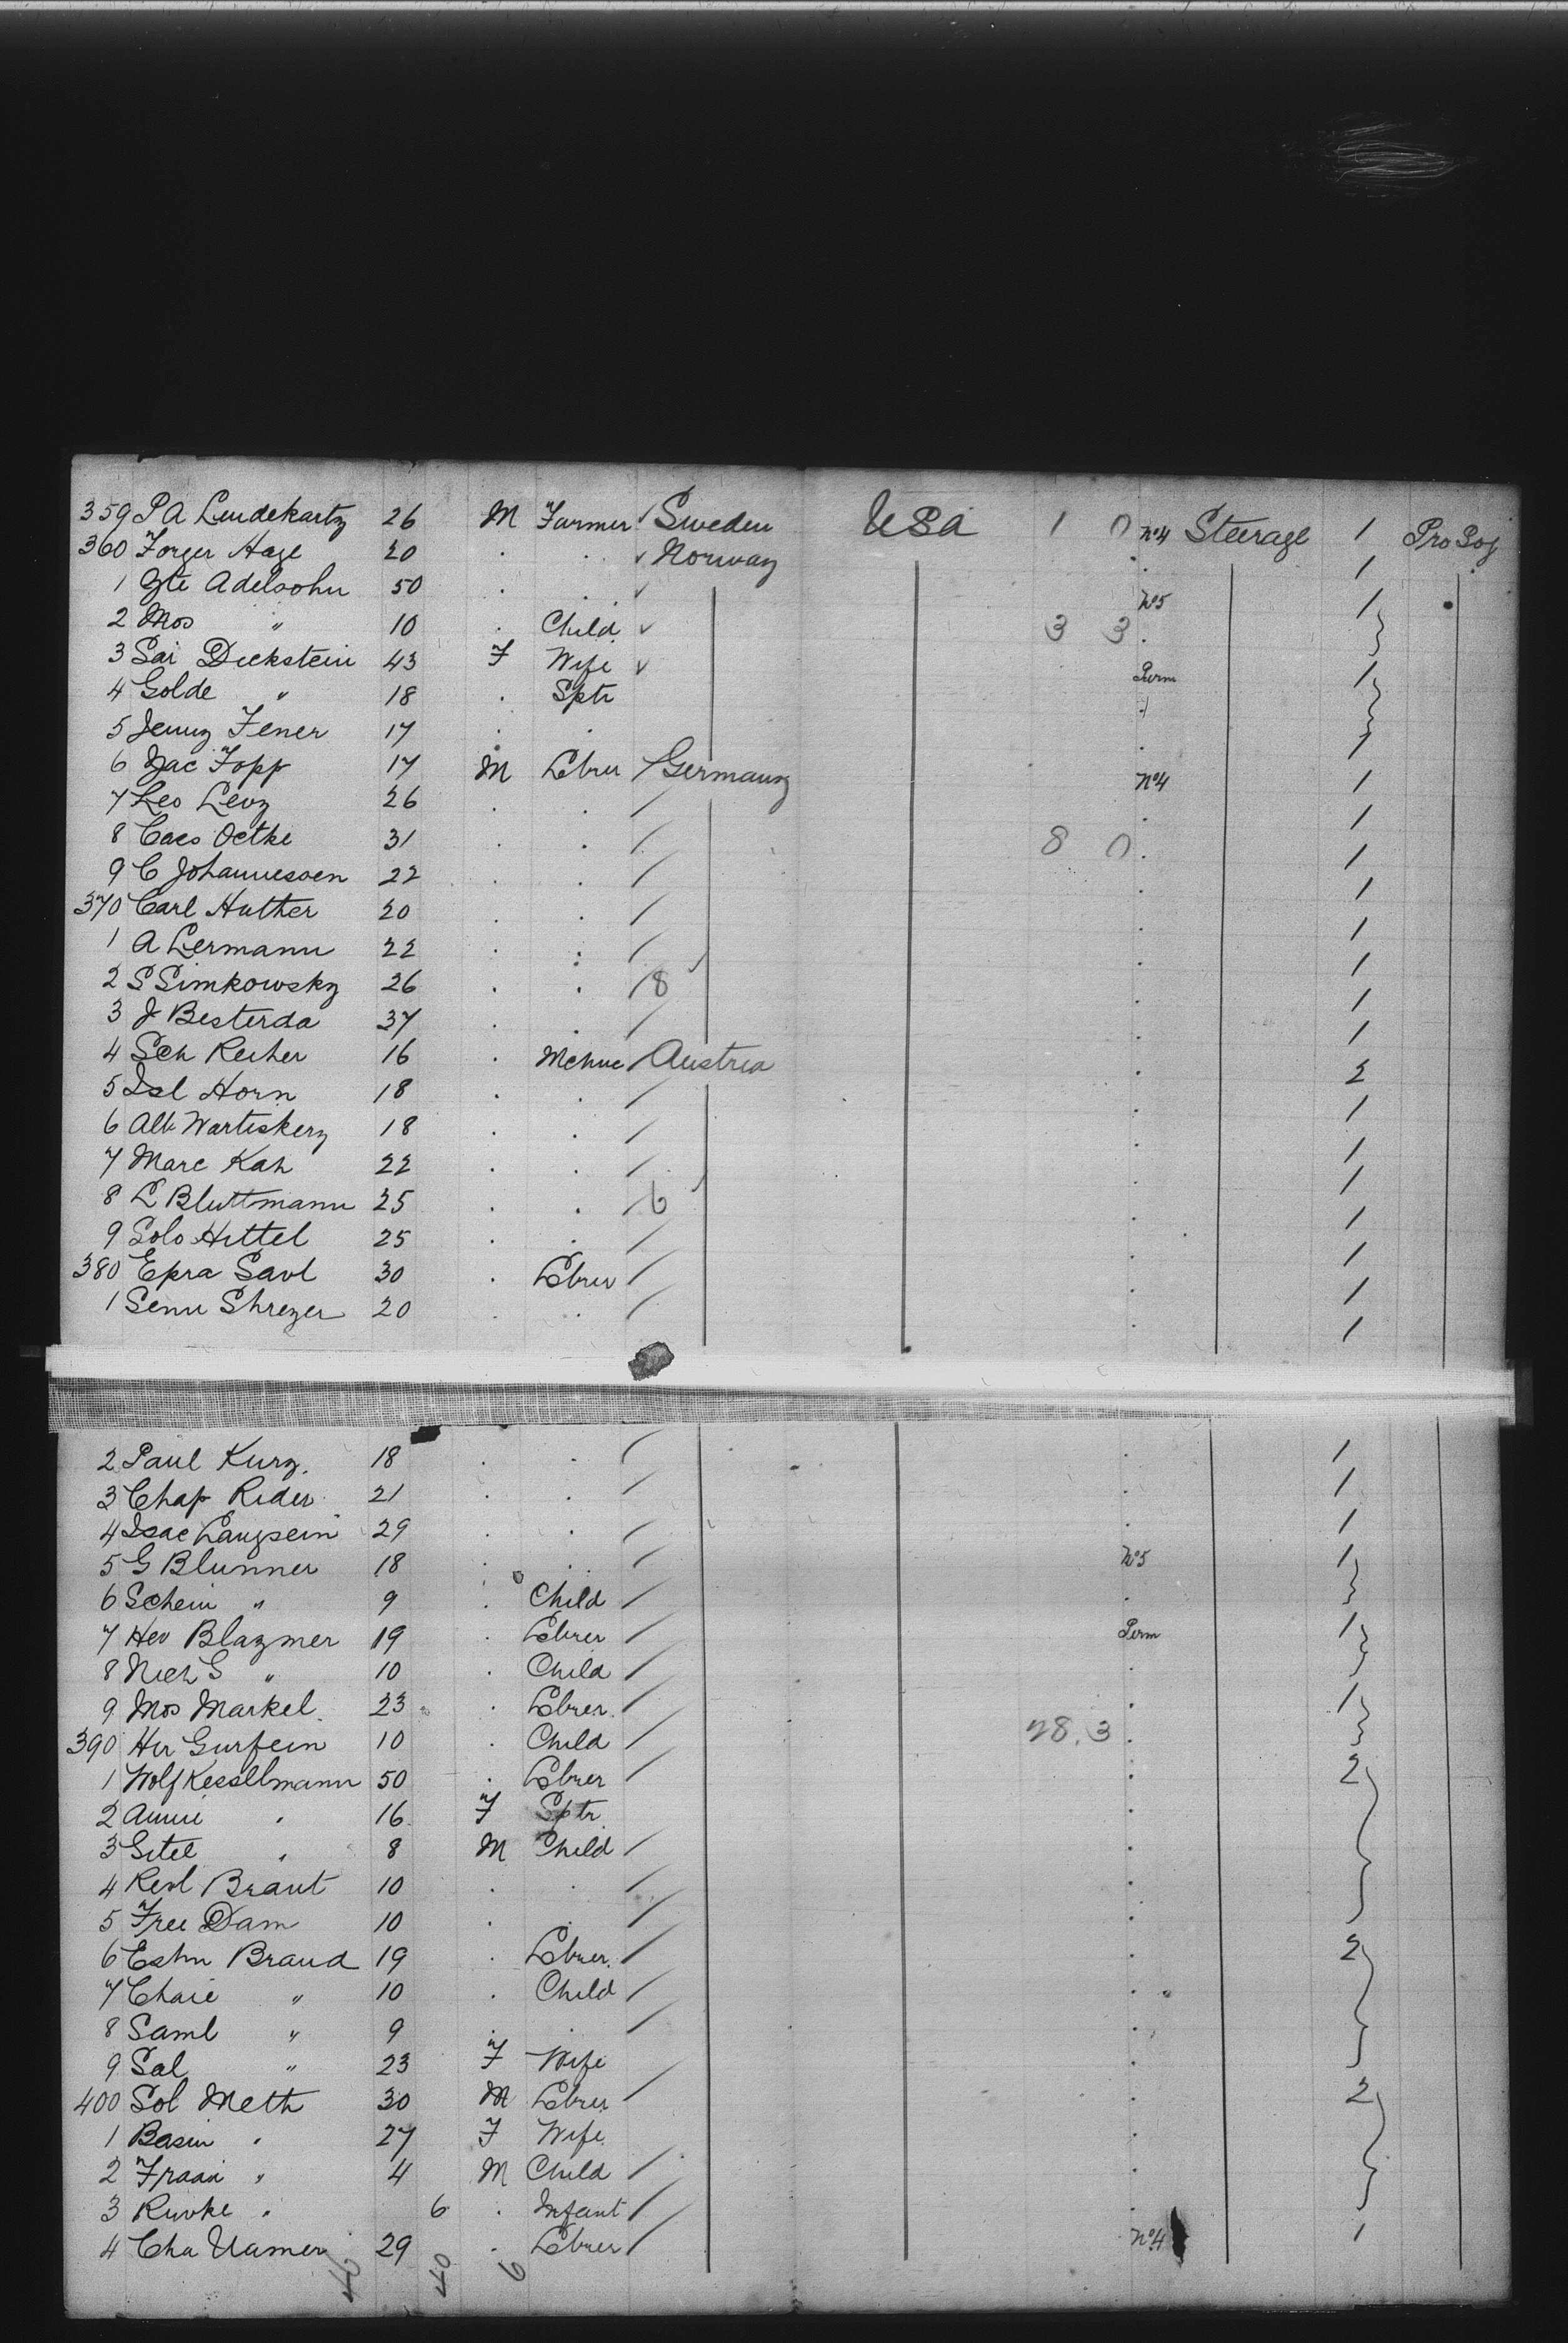 359 P A Lindekartz 26 M Farmer Sweden USA 1 0 No4 Steerage 1 Pro Soj
360 Forger Hage 20 . . Norway . 1
1 Gte Adelsohn 50 . . No5 1
2 Mos " 10 . Child 3 3 .
3 Sai Dickstein 43 F Wife Perm 1
4 Golde " 18 . Sptr
5 Jenny Fener 17 . . . 1
6 Jac Fopp 17 M Lbrer Germany No4 1
7 Leo Levy 26 . . . 1
8 Caes Oetke 31 . . 8 0 . 1
9 C Johannessen 22 . . . 1
370 Carl Huther 20 . . . 1
1 A Lermann 22 . . . 1
2 S Simkowsky 26 . . 8 . 1
3 J Besterda 37 . . . 1
4 Sch Reiher 16 . Mchnc Austria . 2
5 Isl Horn 18 . . . 1
6 Alb Wartiskery 18 . . . 1
7 Marc Kah 22 . . . 1
8 L Bluttmann 25 . . 6 . 1
9 Solo Hittel 25 . . . 1
380 Epra Savl 30 . Lbrer . 1
1 Senn Shrezer 20 . . . 1
2 Paul Kurz. 18 . . . 1
3 Chap Rider 21 . . . 1
4 Isac Langsein 29 . . . 1
5 G Blunner 18 . . No5 1
6 Schein " 9 . Child .
7 Hev Blazmer 19 . Lbrer Perm 1
8 Nich S " 10 . Child .
9 Mos Markel 23 . Lbrer . 1
390 Hir Gurfein 10 . Child 28.3 .
1 Wolf Kessllmann 50 . Lbrer . 2
2 Annie " 16 F Sptr .
3 Gitel " 8 M Child .
4 Resl Braut 10 . . .
5 Free Dam 10 . . .
6 Esthn Braud 19 . Lbrer . 2
7 Chaie " 10 . Child .
8 Saml " 9 . . .
9 Sal " 23 F Wife .
400 Sol Meth 30 M Lbrer . 2
1 Basin " 27 F Wife .
2 " 4 M Child .
3 Rivke " 6 . Infant .
4 Cha Uamer 29 . Lbrer No4 1
40 40 6